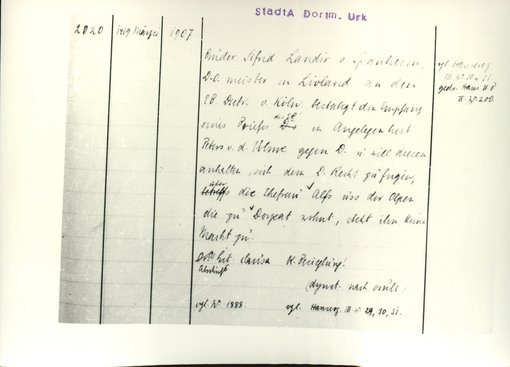 StadtA Dortm. Urk
2020
1419 März
1907
Bruder Sifrid Landir v. Spanheim,
D.O. meister in Livland an den
EB. Dietr. v. Köln. bestätigt den Empfang
eines Briefs des EB in Angelegenheit
Peters v. d. Ulme gegen D. u. will diesen
anhalten, sich dem D. Recht zu fügen,
über die Ehefrau Alfs uss der Olpen
die zu Dorpat wohnt, steht ihm keine
Macht zu.
Abschrift
(dynst. nach
vgl. Nr 1888.
vgl. Hanserez. III nr 29, 30, 31.
vgl. Hanserez.
III nr 30 u. 31.
gedr. Hans. U B